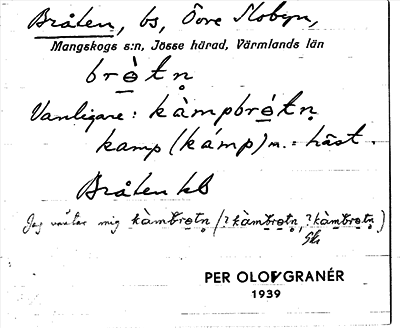 Bråten, bs, Övre Skobyn,
Mangskogs s:n, Jösse härad, Värmlands län
brɵ̀tn̥
Vanligare: kàmpbrɵ́tn̥
kamp (kámp) m. = häst.
Bråten hb
Jag väntar mig kàmbrɵtn̥ (? kàmbrɵtn̥, ? kàmbrɵtn̥)
PER OLOF GRANÉR
1939